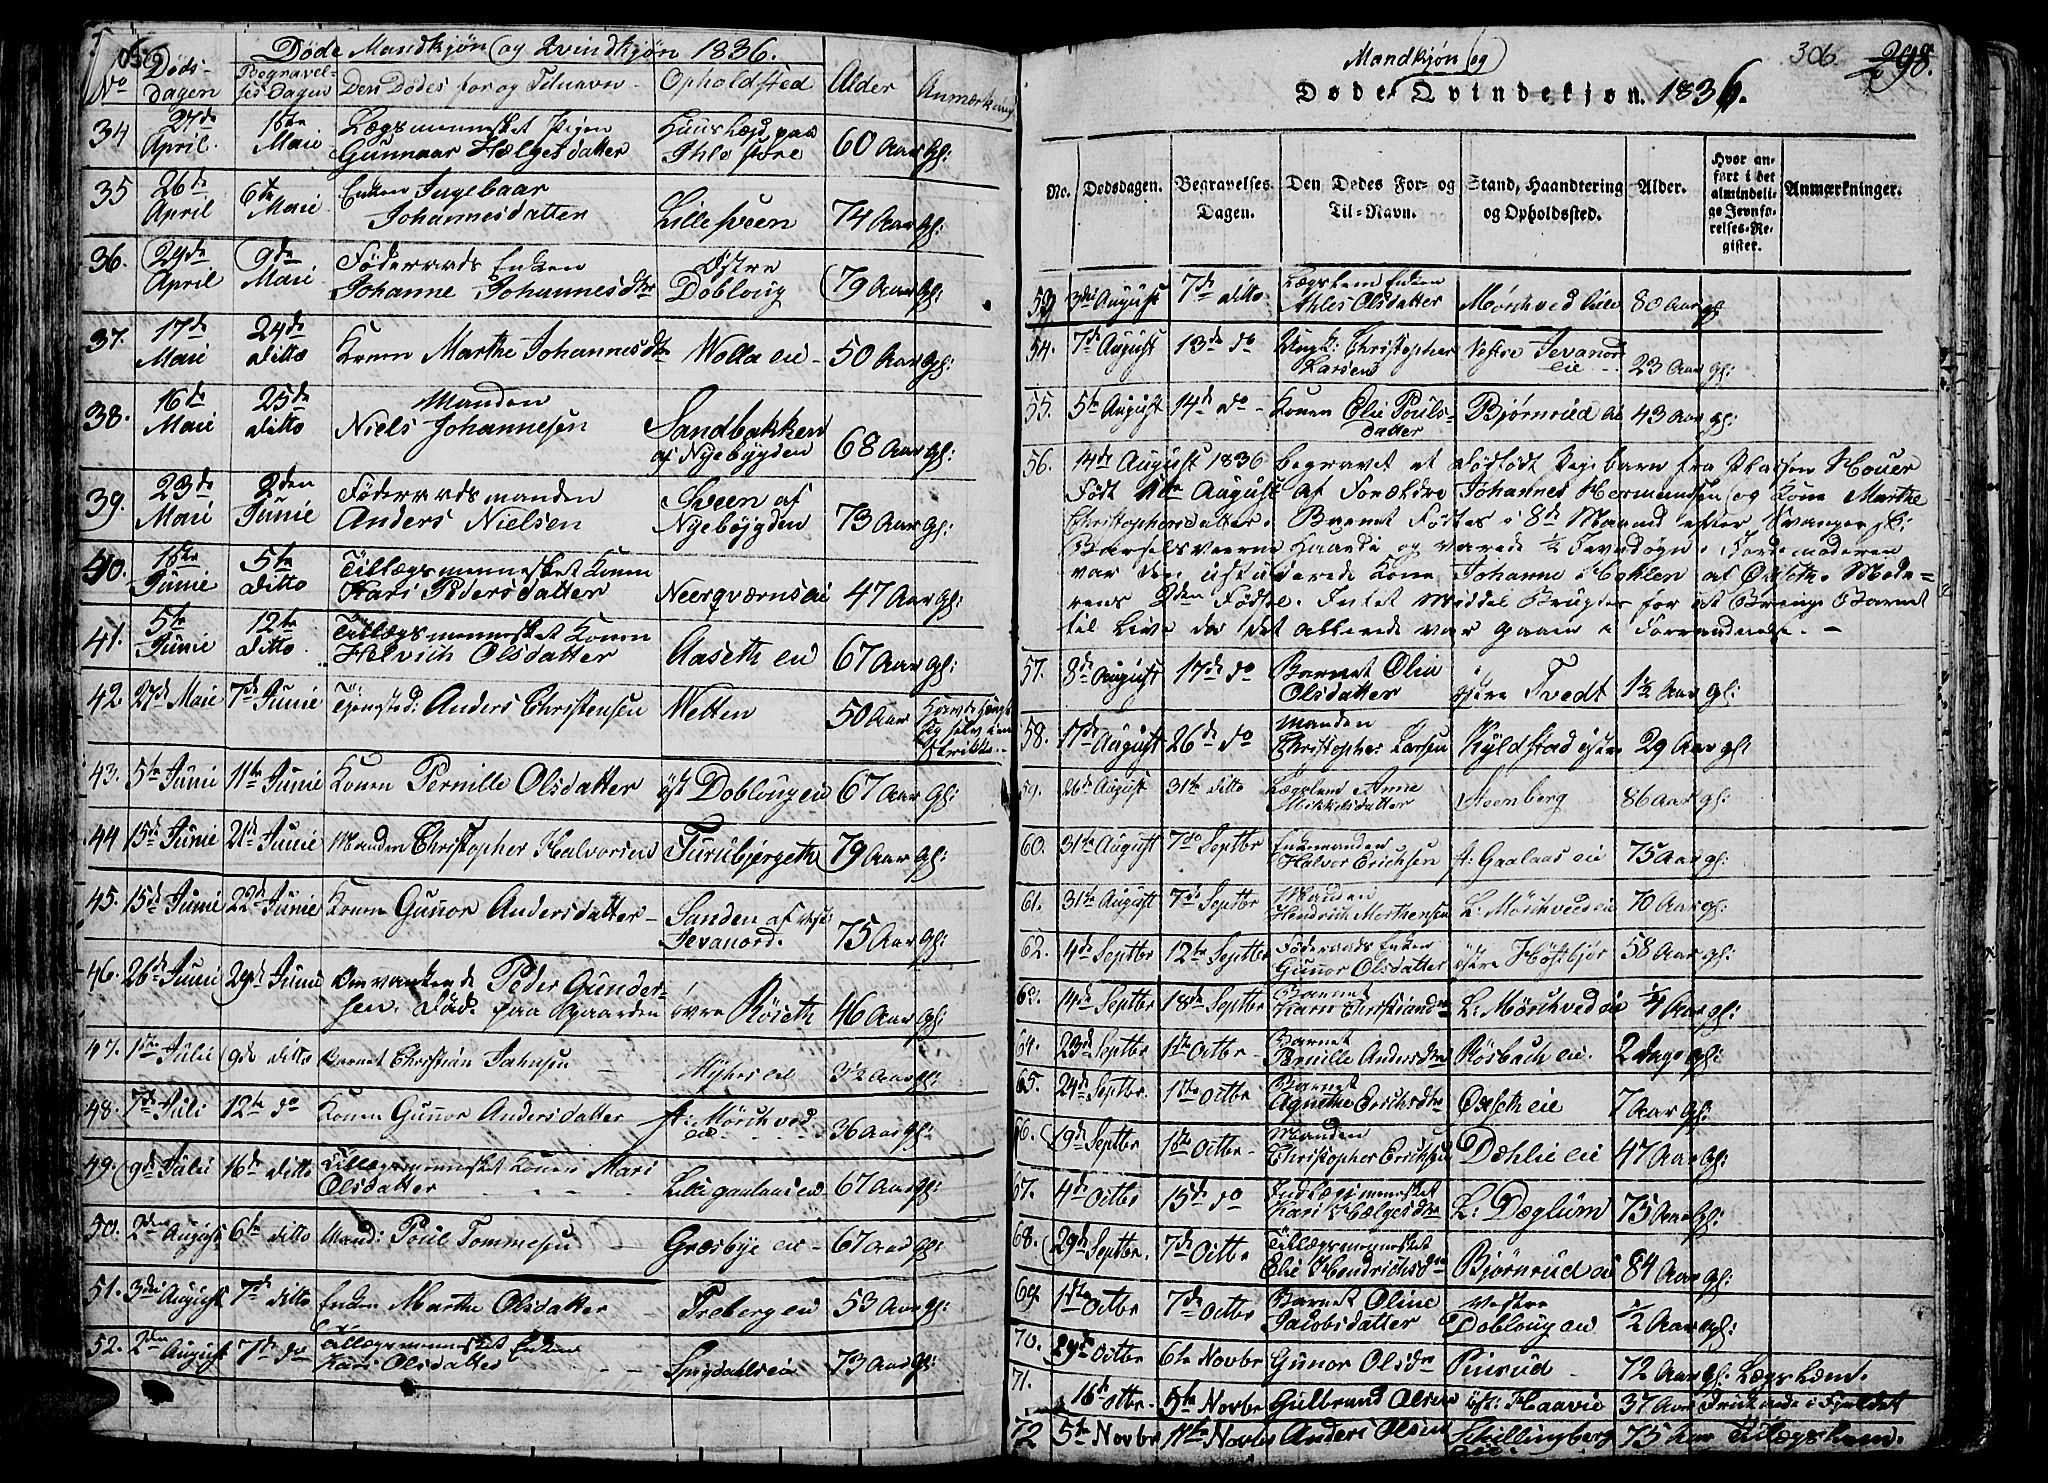 Døde Mandkjøn og Qvindkjøn 1836.
No Døds-dagen Begravel-sesdagen Den Dødes for og Tilnavn Opholdsted Alder Anmærkning
34 27de April. 1ste Maie Lægsmennesket Pigen Gunnaar Hælgesdatter Huuslægd paa Ihle store 60 Aar gl:
35 26de April 6te Maie Enken Ingebaar Johannesdatter Lillesveen 74 Aar gl:
36. 29de April 9de Maie Føderaads Enken Johanne Johannesdtr Østre Dobloug 79 Aar gl:
37. 17de Maie 24de ditto Konen Marthe Johannesdtr Wolla eie 50 Aar gl:
38. 16de Maie 25de ditto Manden Niels Johannesen Sandbakken af Nyebygden 68 Aar gl:
39. 23de Maie 2den Junie Føderaadsmanden Anders Nielsen Sveen af Nyebøygden 73 Aar gl:
40. 1ste Junie 5te ditto Tillægsmennesket Konen Kari Pedersdatter Neerqværnseie 47 Aar gl:
41. 5te Junie 12te ditto Tillægsmennesket Konen Helvich Olsdatter Aaseth eie 67 Aar gl:
42. 27de Maie 7de Junie Tjenested: Anders Christensen Wetten 50 Aar hængt sig selv i en Strikke.
43. 5te Junie 11te Junie Konen Pernille Olsdatter øst Dobloug eie 67 Aar gl:
44 15de Junie 21de Junie Manden Christopher Halvorsen Furubjergeth 79 Aar gl:
45. 15de Junie 22de Junie Konen Gunnor Andersdatter Sanden af Jevanord. 75 Aar gl:
46. 26de Junie 29de Junie Omvankende Peder Gundersen. Død paa Gaarden øvre Røseth 46 Aar gl:
47. 1ste Julie 9de ditto Barnet Christian Jahnsen Myhre eie 3½ Aar gl:
48. 7de Juli 12te do Konen Gunnor Andersdatter st: Mørchved eie 36 Aar gl:
49. 9de Julie 16de ditto Tillægsmennesket Konen Mari Olsdatter Lillegaalaas eie 67 Aar gl:
50. 2den August 6te ditto Mand: Poul Tommesen Græsbye eie 67 Aar gl:
51. 3die August 7de ditto Enken Marthe Olsdatter Freberg eie 53 Aar gl:
52. 2den August 7de do Tillægsmennesket Enken Kari Olsdatter 73 Aar gl:
306 298.
Mandkjøn og
Døde Qvindekjøn. 1836.
No. Dødsdagen. Begravelses-Dagen. Den Dødes For- og Til-Navn. Stand, Haandtering og Opholdssted. Alder. Hvor anført i det almindelige Jevnførelses-Register. Anmærkninger.
53. 3die August 7de ditto Lægslem Enken Ahles Olsdatter Mørchved lille 80 Aar gl
54. 7de August 13de do Ungk: Christopher Larsen Vestre Jevanor eie 23 Aar gl:
55. 5te August 14de do Konen Elie Poulsdatter Bjørnrud eie 43 Aar gl:
56. 14de August 1836 begravet et Dødfødt Pigebarn fra Pladsen Houer
Født 11te August af Forældre Johannes Hermundsen og Kone Marthe
Christophersdatter. Barnet Fødtes i 8de Maaned efter Svangersk:
Barselsveerne haarde og varede ½ Jevndøgn. Jordemoderen
var den ustuderede Kone Johanne i Hohlen af Oxseth. Mode-
rens 2den Fødsel. Intet Middel Brugtes for at Bringe Barnet
til Live da det allerede var gaaen i Forraadnelse. -
57. 8de August 17de do Barnet Olia Olsdatter østre Tvedt 1½ Aar gl:
58. 17de August 26de do Manden Christopher Larsen Kyldstad østre 29 Aar gl
59. 26de August 31te ditto Lægslem Anne Mikkelsdatter Steenberg 86 Aar gl:
60. 31te August 7de Septbr Enkemanden Halvor Erichsen st: Gaalaas eie 75 Aar gl:
61. 31te August 7de Septbr Manden Hendrich Morthensen L: Mørchved eie 70 Aar gl:
62. 4de Septbr 12te Septbr Føderaads Enken Gunnor Olsdatter østre Høstbjør 58 Aar gl:
63. 14de Septbr 18de Septbr Barnet Karn Christiansdtr L: Mørchved eie ¼ Aar gl:
64. 23de Septbr 1ste Octbr Barnet Pernille Andersdtr Røsbach eie. 2 dage gl:
65. 24de Septbr 1ste Octbr Barnet Agnethe Erichsdtr Oxseth eie 7 Aar gl:
66. 19de Septbr 1ste Octbr Manden Christopher Erichsen Dæhlie eie 47 Aar gl:
67. 4de Octbr 15de do Indlægsmennesket Kari Hælgesdtr L: Dæglum 75 Aar gl:
68. 29de Septbr. 7de Octbr Tillægsmennesket Elie Hendrichsdtr Bjørnrud ei 84 Aar gl:
69. 1ste Octbr 7de Octbr Barnet Oline Jacobsdatter Vestre Dobloug eie ½ Aar gl:
70. 29de Octbr 6te Novbr Gunor Olsdtr Pinrud 72 Aar gl: Lægslem.
71. 16de Octbr. 5te Novbr Gulbrand Olsen øst: Haavie 37 Aar Drukned i Fjeldet
72 5te Novbr 11te Novbr Anders Olsen Skillingberg eie 75 Aar Tillægslem.